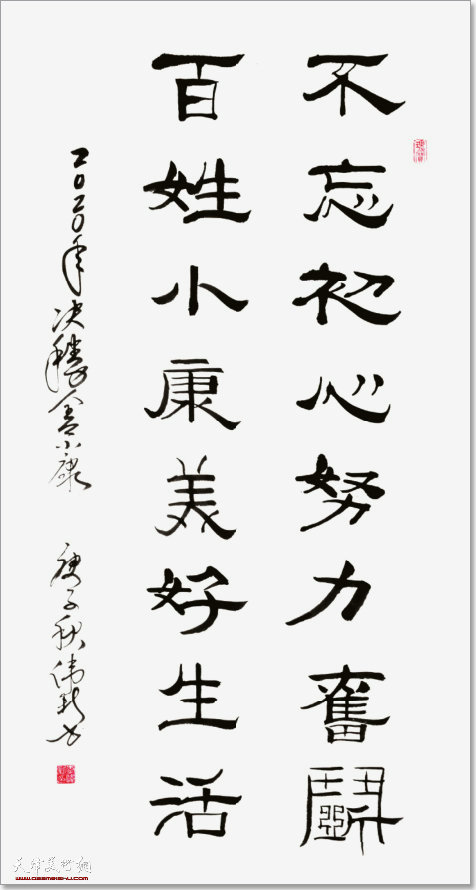 不忘初心努力奮鬭
百姓小康美好生活
二0二0年决勝全小康
庚子秋伟
天津美术网